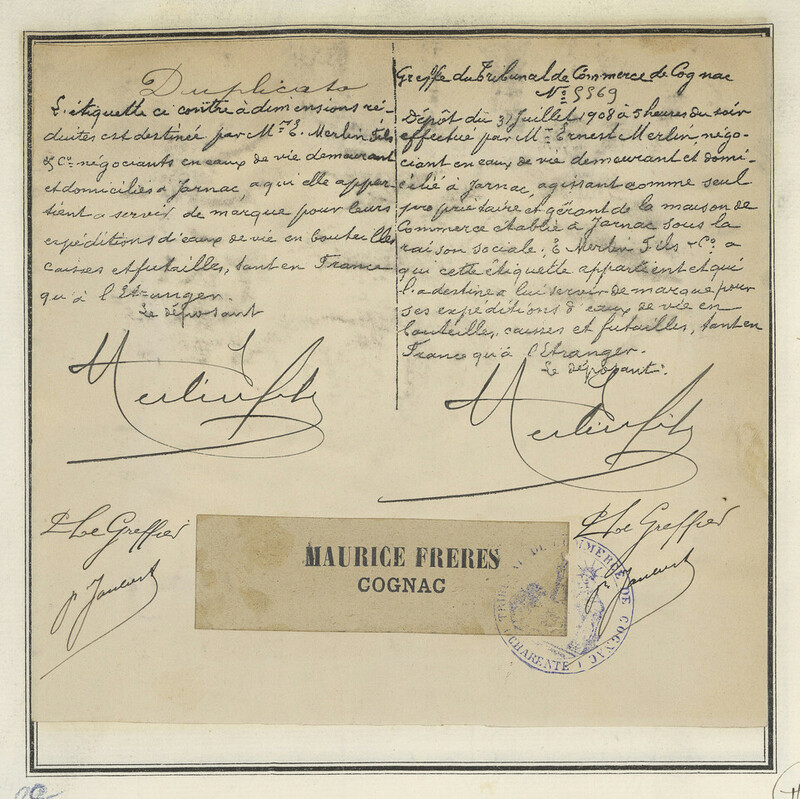 Duplicata
L'étiquette ci contre à dimensions ré-
duites est destinée par Mrs E. Merlin Fils
& Co. négociants en eaux de vie demeurant
et domiciliés à Jarnac, a qui elle appar-
tient a servir de marque pour leurs
expéditions d'eaux de vie en bouteilles
caisses et futailles, tant en France
qu'à l'Etranger.
Le déposant
Merlin fils
Le Greffier
Greffe du Tribunal de Commerce de Cognac
No. 5569
Dépôt du 31 Juillet 1908 à 5 heures du soir
effectué par Mr. Ernest Merlin, négo-
ciant en eaux de vie demeurant et domi-
cilié à Jarnac, agissant comme seul
propriétaire et gérant de la maison de
Commerce établie à Jarnac sous la
raison sociale: E Merlin Fils & Co. a
qui cette étiquette appartient et qui
l'a destine a lui servir de marque pour
ses expéditions d'eaux de vie en
bouteilles, caisses et futailles, tant en
France qu'à l'Etranger.
Le déposant:
Merlin fils
Le Greffier
MAURICE FRERES
COGNAC
TRIBUNAL DE COMMERCE DE COGNAC
CHARENTE